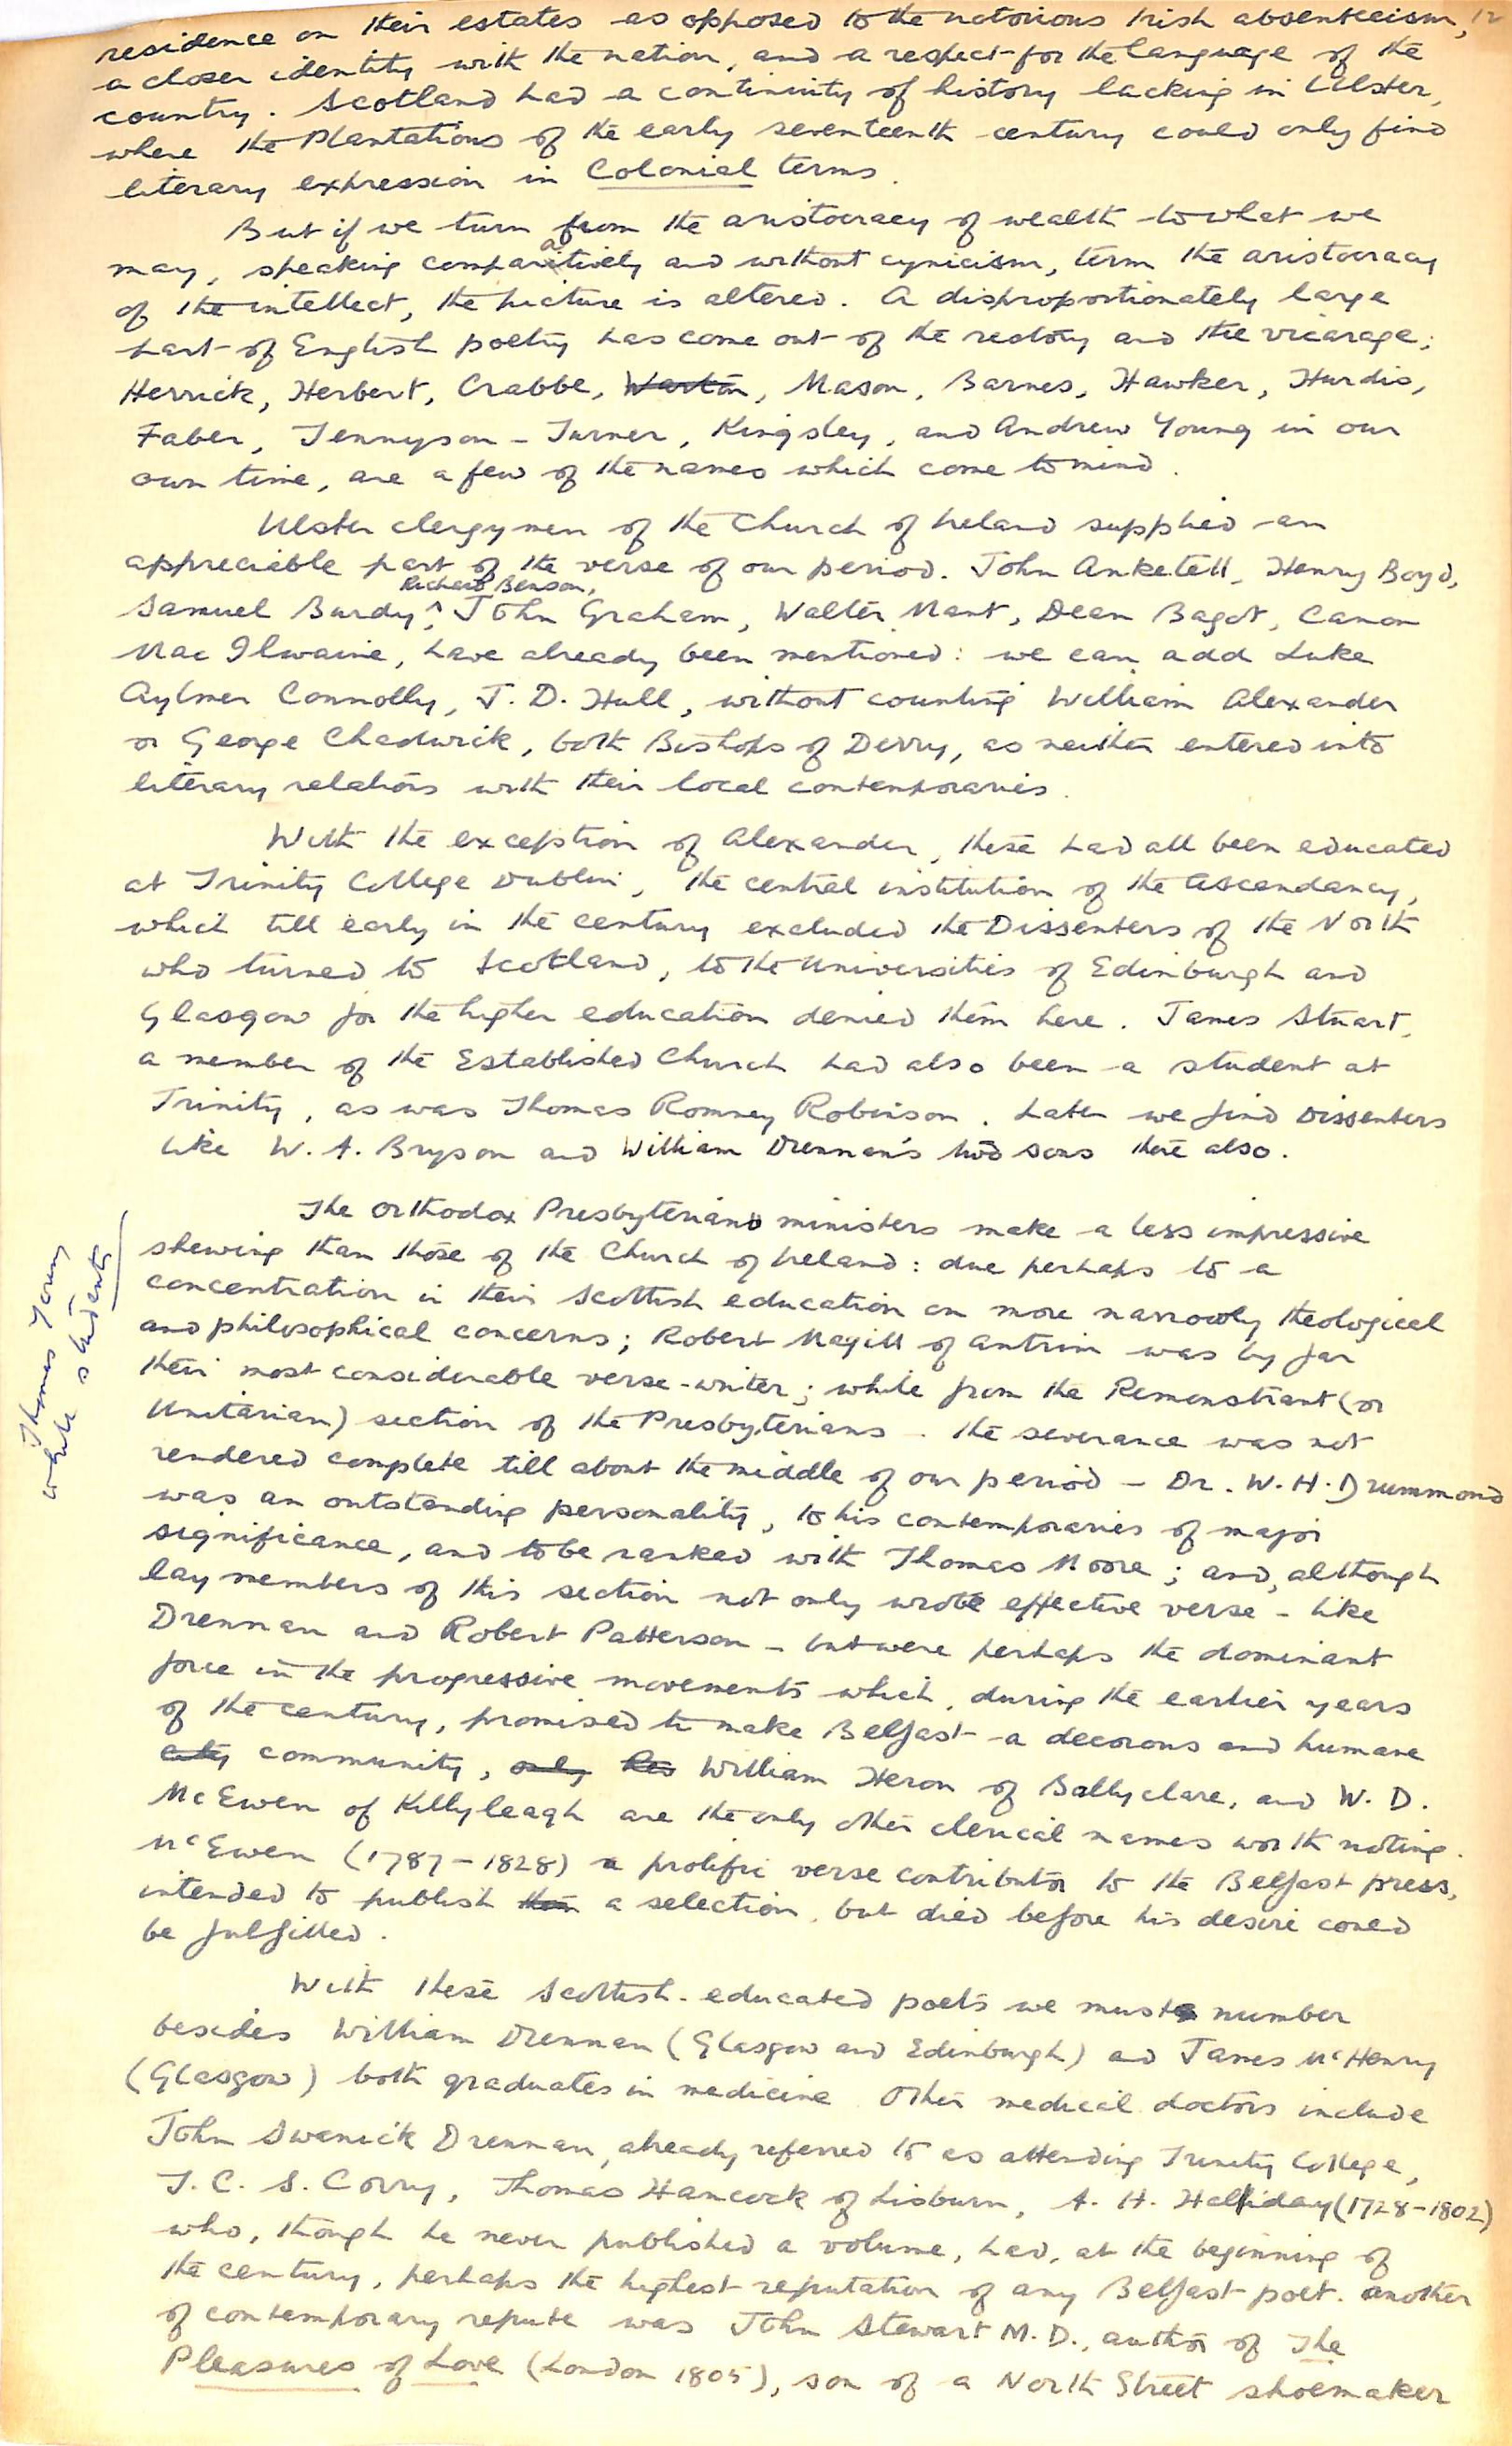 12
residence on their estates as opposed to the notorious Irish absenteeism,
a closer identity with the nation, and a respect for the language of the
country. Scotland had a continuity of history lacking in Ulster,
where the Plantations of the early seventeenth century could only find
literary expression in Colonial terms.
But if we turn from the aristocracy of wealth to what we
may, speaking comparatively and without cynicism, term the aristocracy
of the intellect, the picture is altered. A disproportionately large
part of English poetry has come out of the rectory and the vicarage;
Herrick, Herbert, Crabbe, Warton, Mason, Barnes, Hawker, Hurdis,
Faber, Tennyson-Turner, Kingsley, and Andrew Young in our
own time, are a few of the names which come to mind.
Ulster clergymen of the Church of Ireland supplied an
appreciable part of the verse of our period. John Anketell, Henry Boyd,
Richard Benson,
Samuel Burdy, John Graham, Walter Mant, Dean Bagot, Canon
MacIlwaine, have already been mentioned: we can add Luke
Aylmer Connolly, J. D. Hull, without counting William Alexander
or George Chadwick, both Bishops of Derry, as neither entered into
literary relations with their local contemporaries.
With the exception of Alexander, these had all been educated
at Trinity College Dublin, the central institution of the Ascendancy,
which till early in the century excluded the Dissenters of the North
who turned to Scotland, to the Universities of Edinburgh and
Glasgow for the higher education denied them here. James Stuart,
a member of the Established Church had also been a student at
Trinity, as was Thomas Romney Robinson. Later we find Dissenters
like W. A. Bryson and William Drennan's two sons there also.
The orthodox Presbyterian ministers make a less impressive
shewing than those of the Church of Ireland: due perhaps to a
concentration in their Scottish education on more narrowly theological
and philosophical concerns; Robert Magill of Antrim was by far
their most considerable verse-writer; while from the Remonstrant (or
Unitarian) section of the Presbyterians - the severance was not
rendered complete till about the middle of our period - Dr. W. H. Drummond
was an outstanding personality, to his contemporaries of major
significance, and to be ranked with Thomas Moore; and, although
lay members of this section not only wrote effective verse - like
Drennan and Robert Patterson - but were perhaps the dominant
force in the progressive movements which, during the earlier years
of the century, promised to make Belfast a decorous and humane
city community, only his William Heron of Ballyclare, and W. D.
McEwen of Killyleagh are the only other clerical names worth noting.
McEwen (1787-1828) a prolific verse contributor to the Belfast press,
intended to publish a selection, but died before his desire could
be fulfilled.
With these Scottish-educated poets we must number
besides William Drennan (Glasgow and Edinburgh) and James McHenry
(Glasgow) both graduates in medicine. Other medical doctors include
John Swanwick Drennan, already referred to as attending Trinity College,
T. C. S. Corry, Thomas Hancock of Lisburn, A. H. Haliday (1728-1802)
who, though he never published a volume, had, at the beginning of
the century, perhaps the highest reputation of any Belfast poet. Another
of contemporary repute was John Stewart M.D., author of The
Pleasures of Love (London 1805), son of a North Street shoemaker
Thomas Young
while students